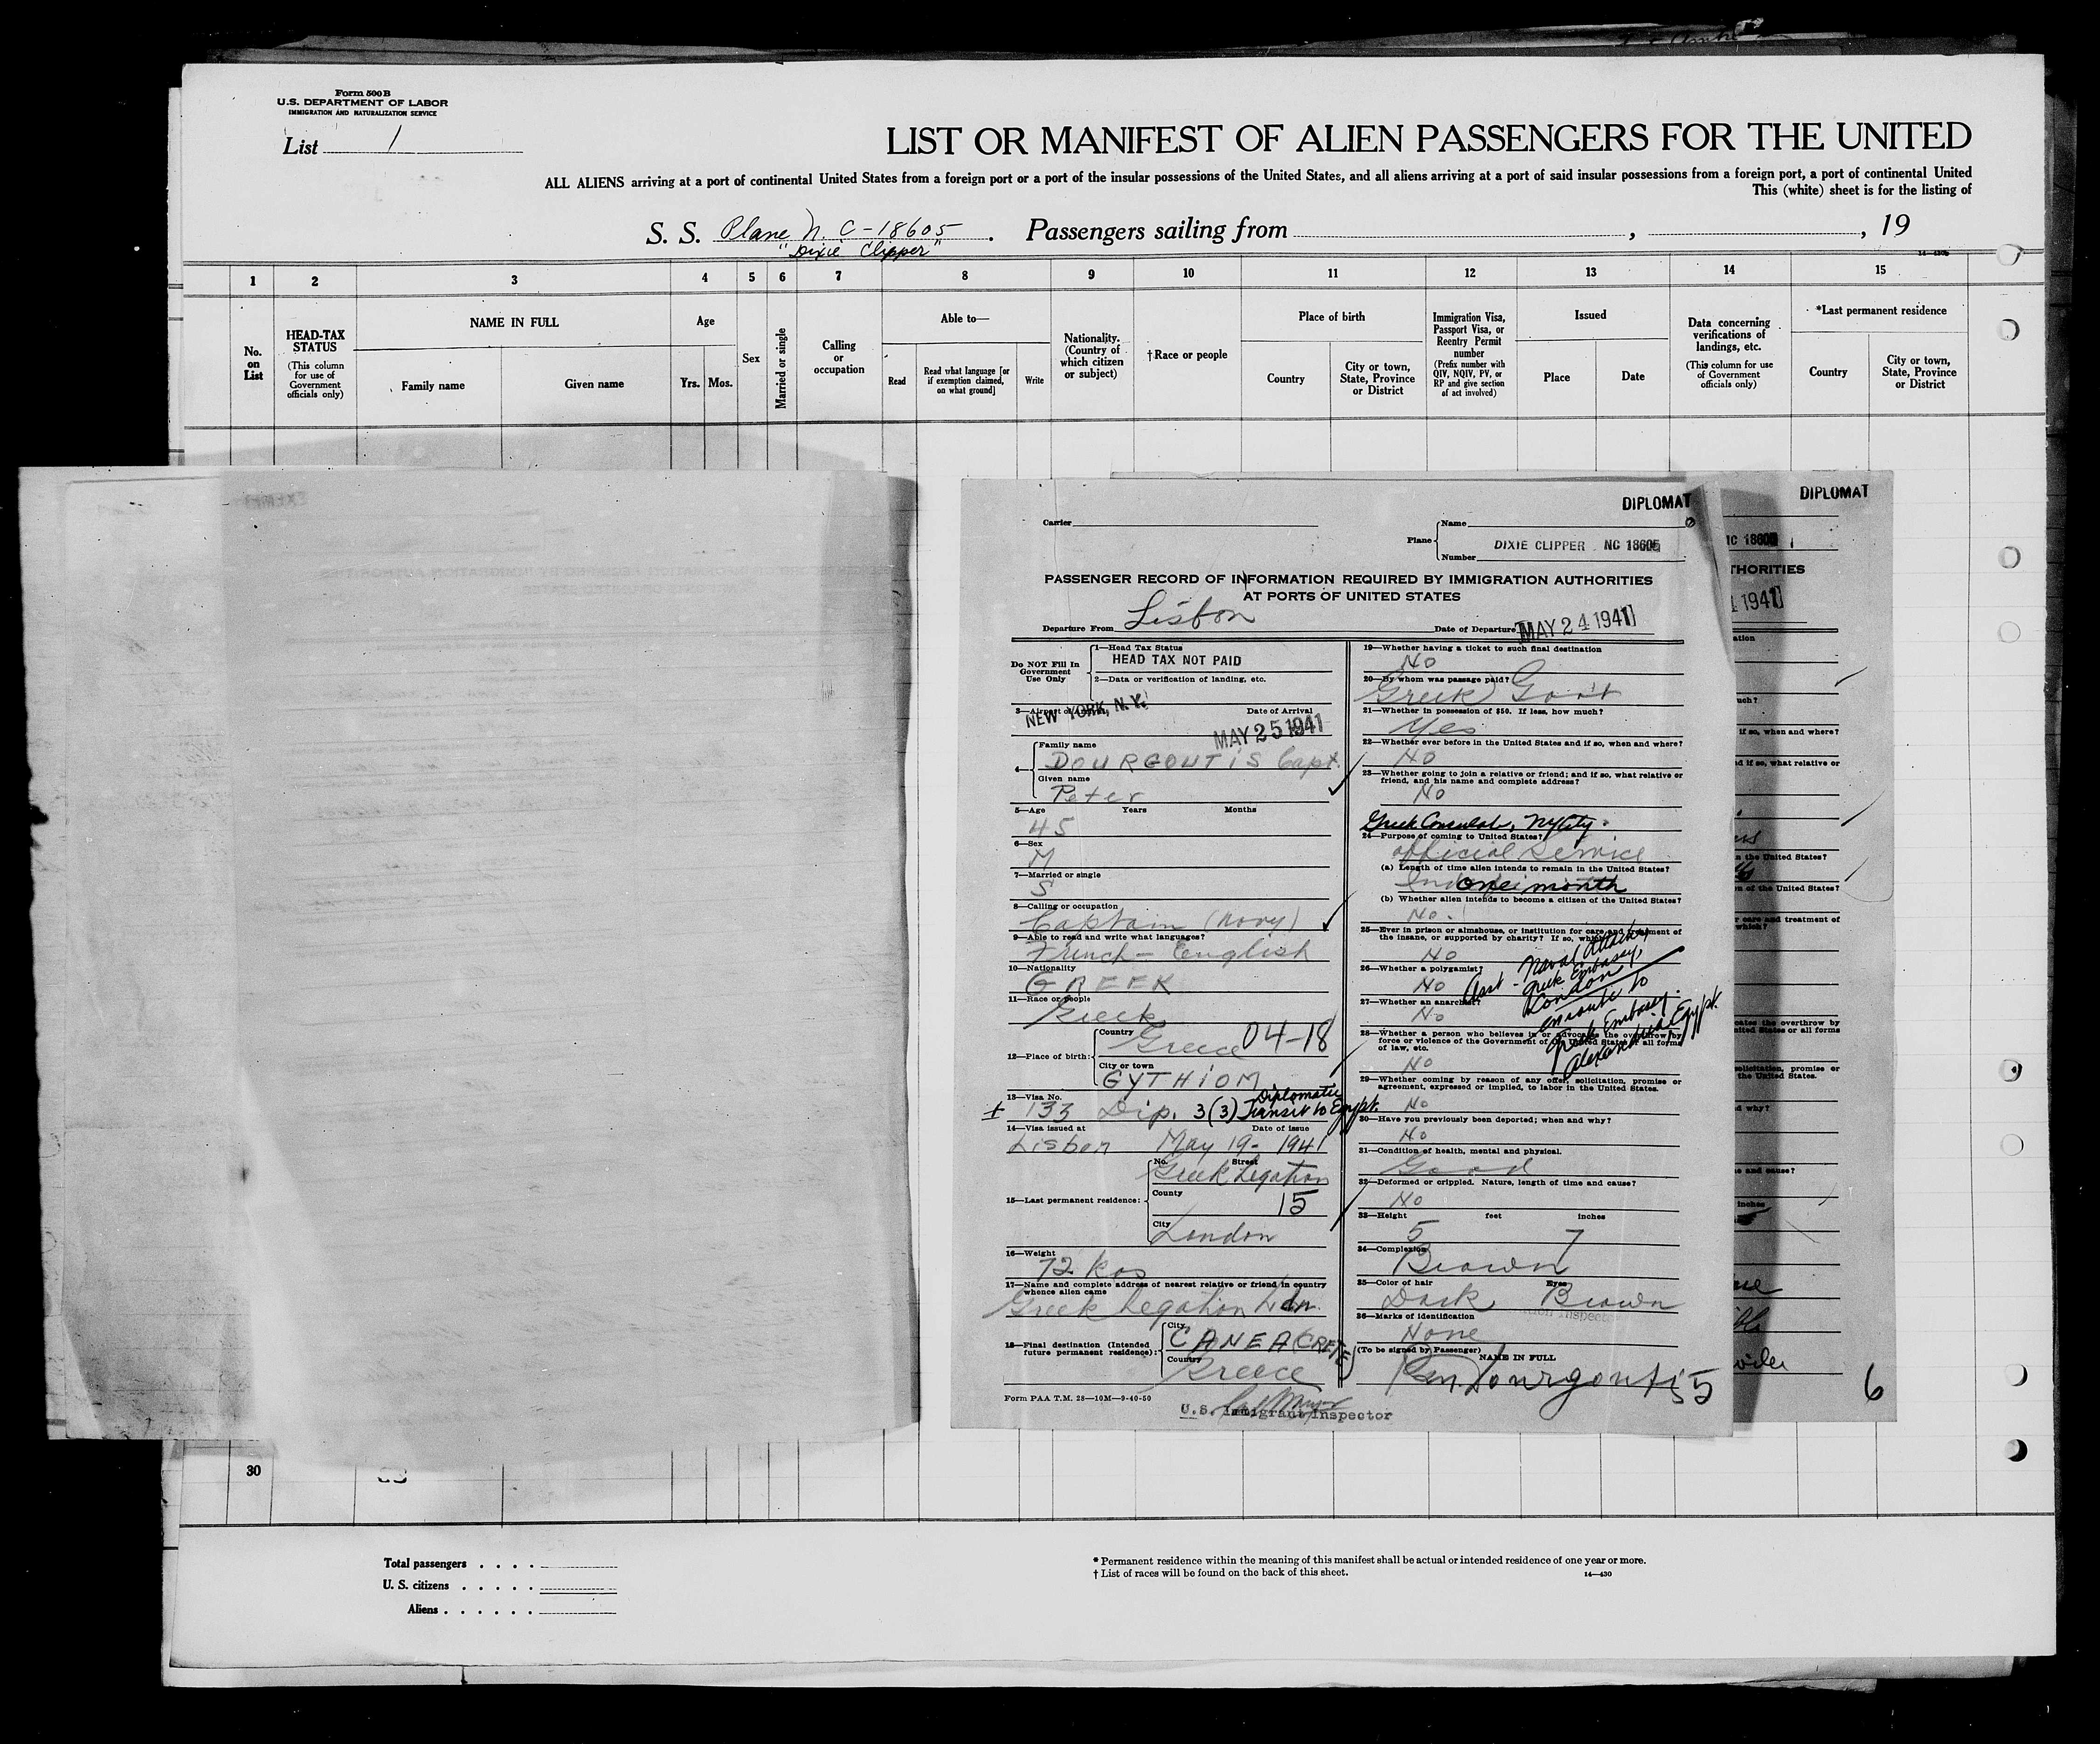 Form 500 B
U.S. DEPARTMENT OF LABOR
IMMIGRATION AND NATURALIZATION SERVICE
List 1
LIST OR MANIFEST OF ALIEN PASSENGERS FOR THE UNITED
ALL ALIENS arriving at a port of continental United States from a foreign port or a port of the insular possessions of the United States, and all aliens arriving at a port of said insular possessions from a foreign port, a port of continental United
This (white) sheet is for the listing of
S. S. Plane N. C-18605 . Passengers sailing from , , 19
"Dixie Clipper"
1 2 3 4 5 6 7 8 9 10 11 12 13 14 15
No. on List
HEAD-TAX STATUS
(This column for use of Government officials only)
NAME IN FULL
Family name
Given name
Age
Yrs. Mos.
Sex
Married or single
Calling or occupation
Able to—
Read
Read what language [or if exemption claimed, on what ground]
Write
Nationality. (Country of which citizen or subject)
† Race or people
Place of birth
Country
City or town, State, Province or District
Immigration Visa, Passport Visa, or Reentry Permit number
(Prefix number with QIV, NQIV, PV, or RP and give section of act involved)
Issued
Place
Date
Data concerning verifications of landings, etc.
(This column for use of Government officials only)
*Last permanent residence
Country
City or town, State, Province or District
DIPLOMAT
Carrier
Plane Name
DIXIE CLIPPER NC 18605
Number
PASSENGER RECORD OF INFORMATION REQUIRED BY IMMIGRATION AUTHORITIES
AT PORTS OF UNITED STATES
Departure From Lisbon
Date of Departure MAY 24 1941
Do NOT Fill In Government Use Only
1—Head Tax Status
HEAD TAX NOT PAID
2—Data or verification of landing, etc.
NEW YORK, N.Y.
Date of Arrival
MAY 25 1941
4— Family name
DOURGOUTIS Capt.
Given name
Peter
5—Age Years Months
45
6—Sex
M
7—Married or single
S
8—Calling or occupation
Captain (Navy)
9—Able to read and write what languages?
French - English
10—Nationality
GREEK
11—Race or people
Greek
12—Place of birth: Country
Greece 04-18
City or town
GYTHIOM
13—Visa No. Diplomatic
133 Dip. 3(3) Transit to Egypt.
14—Visa issued at Date of issue
Lisbon May 19- 1941
15—Last permanent residence:
No. Street
Greek Legation
County
15
City
London
16—Weight
72 kos
17—Name and complete address of nearest relative or friend in country
whence alien came
Greek Legation Ldn.
18—Final destination (Intended
future permanent residence):
City
CANEA (CRETE)
Country
Greece
Form PAA T.M. 28—10M—9-40-50
U.S. Immigrant Inspector
19—Whether having a ticket to such final destination
No
20—By whom was passage paid?
Greek Gov't
21—Whether in possession of $50. If less, how much?
Yes
22—Whether ever before in the United States and if so, when and where?
No
23—Whether going to join a relative or friend; and if so, what relative or
friend, and his name and complete address?
No
Greek Consulate, NYCity.
24—Purpose of coming to United States?
official service
(a) Length of time alien intends to remain in the United States?
one month
(b) Whether alien intends to become a citizen of the United States?
No.
25—Ever in prison or almshouse, or institution for care and treatment of
the insane, or supported by charity? If so, which?
No
26—Whether a polygamist?
No
27—Whether an anarchist?
No
Asst - Naval Attache,
Greek Embassy,
London
enroute to
Greek Embassy.
Alexandria Egypt.
28—Whether a person who believes in or advocates the overthrow by
force or violence of the Government of the United States or all forms
of law, etc.
No
29—Whether coming by reason of any offer, solicitation, promise or
agreement, expressed or implied, to labor in the United States.
No
30—Have you previously been deported; when and why?
No
31—Condition of health, mental and physical.
Good
32—Deformed or crippled. Nature, length of time and cause?
No
33—Height feet inches
5 7
34—Complexion
Brown
35—Color of hair Eyes
Dark Brown
36—Marks of identification
None
(To be signed by Passenger) NAME IN FULL
5
DIPLOMAT
THORITIES
1941
6
30
Total passengers
U. S. citizens
Aliens
* Permanent residence within the meaning of this manifest shall be actual or intended residence of one year or more.
† List of races will be found on the back of this sheet.
14—430